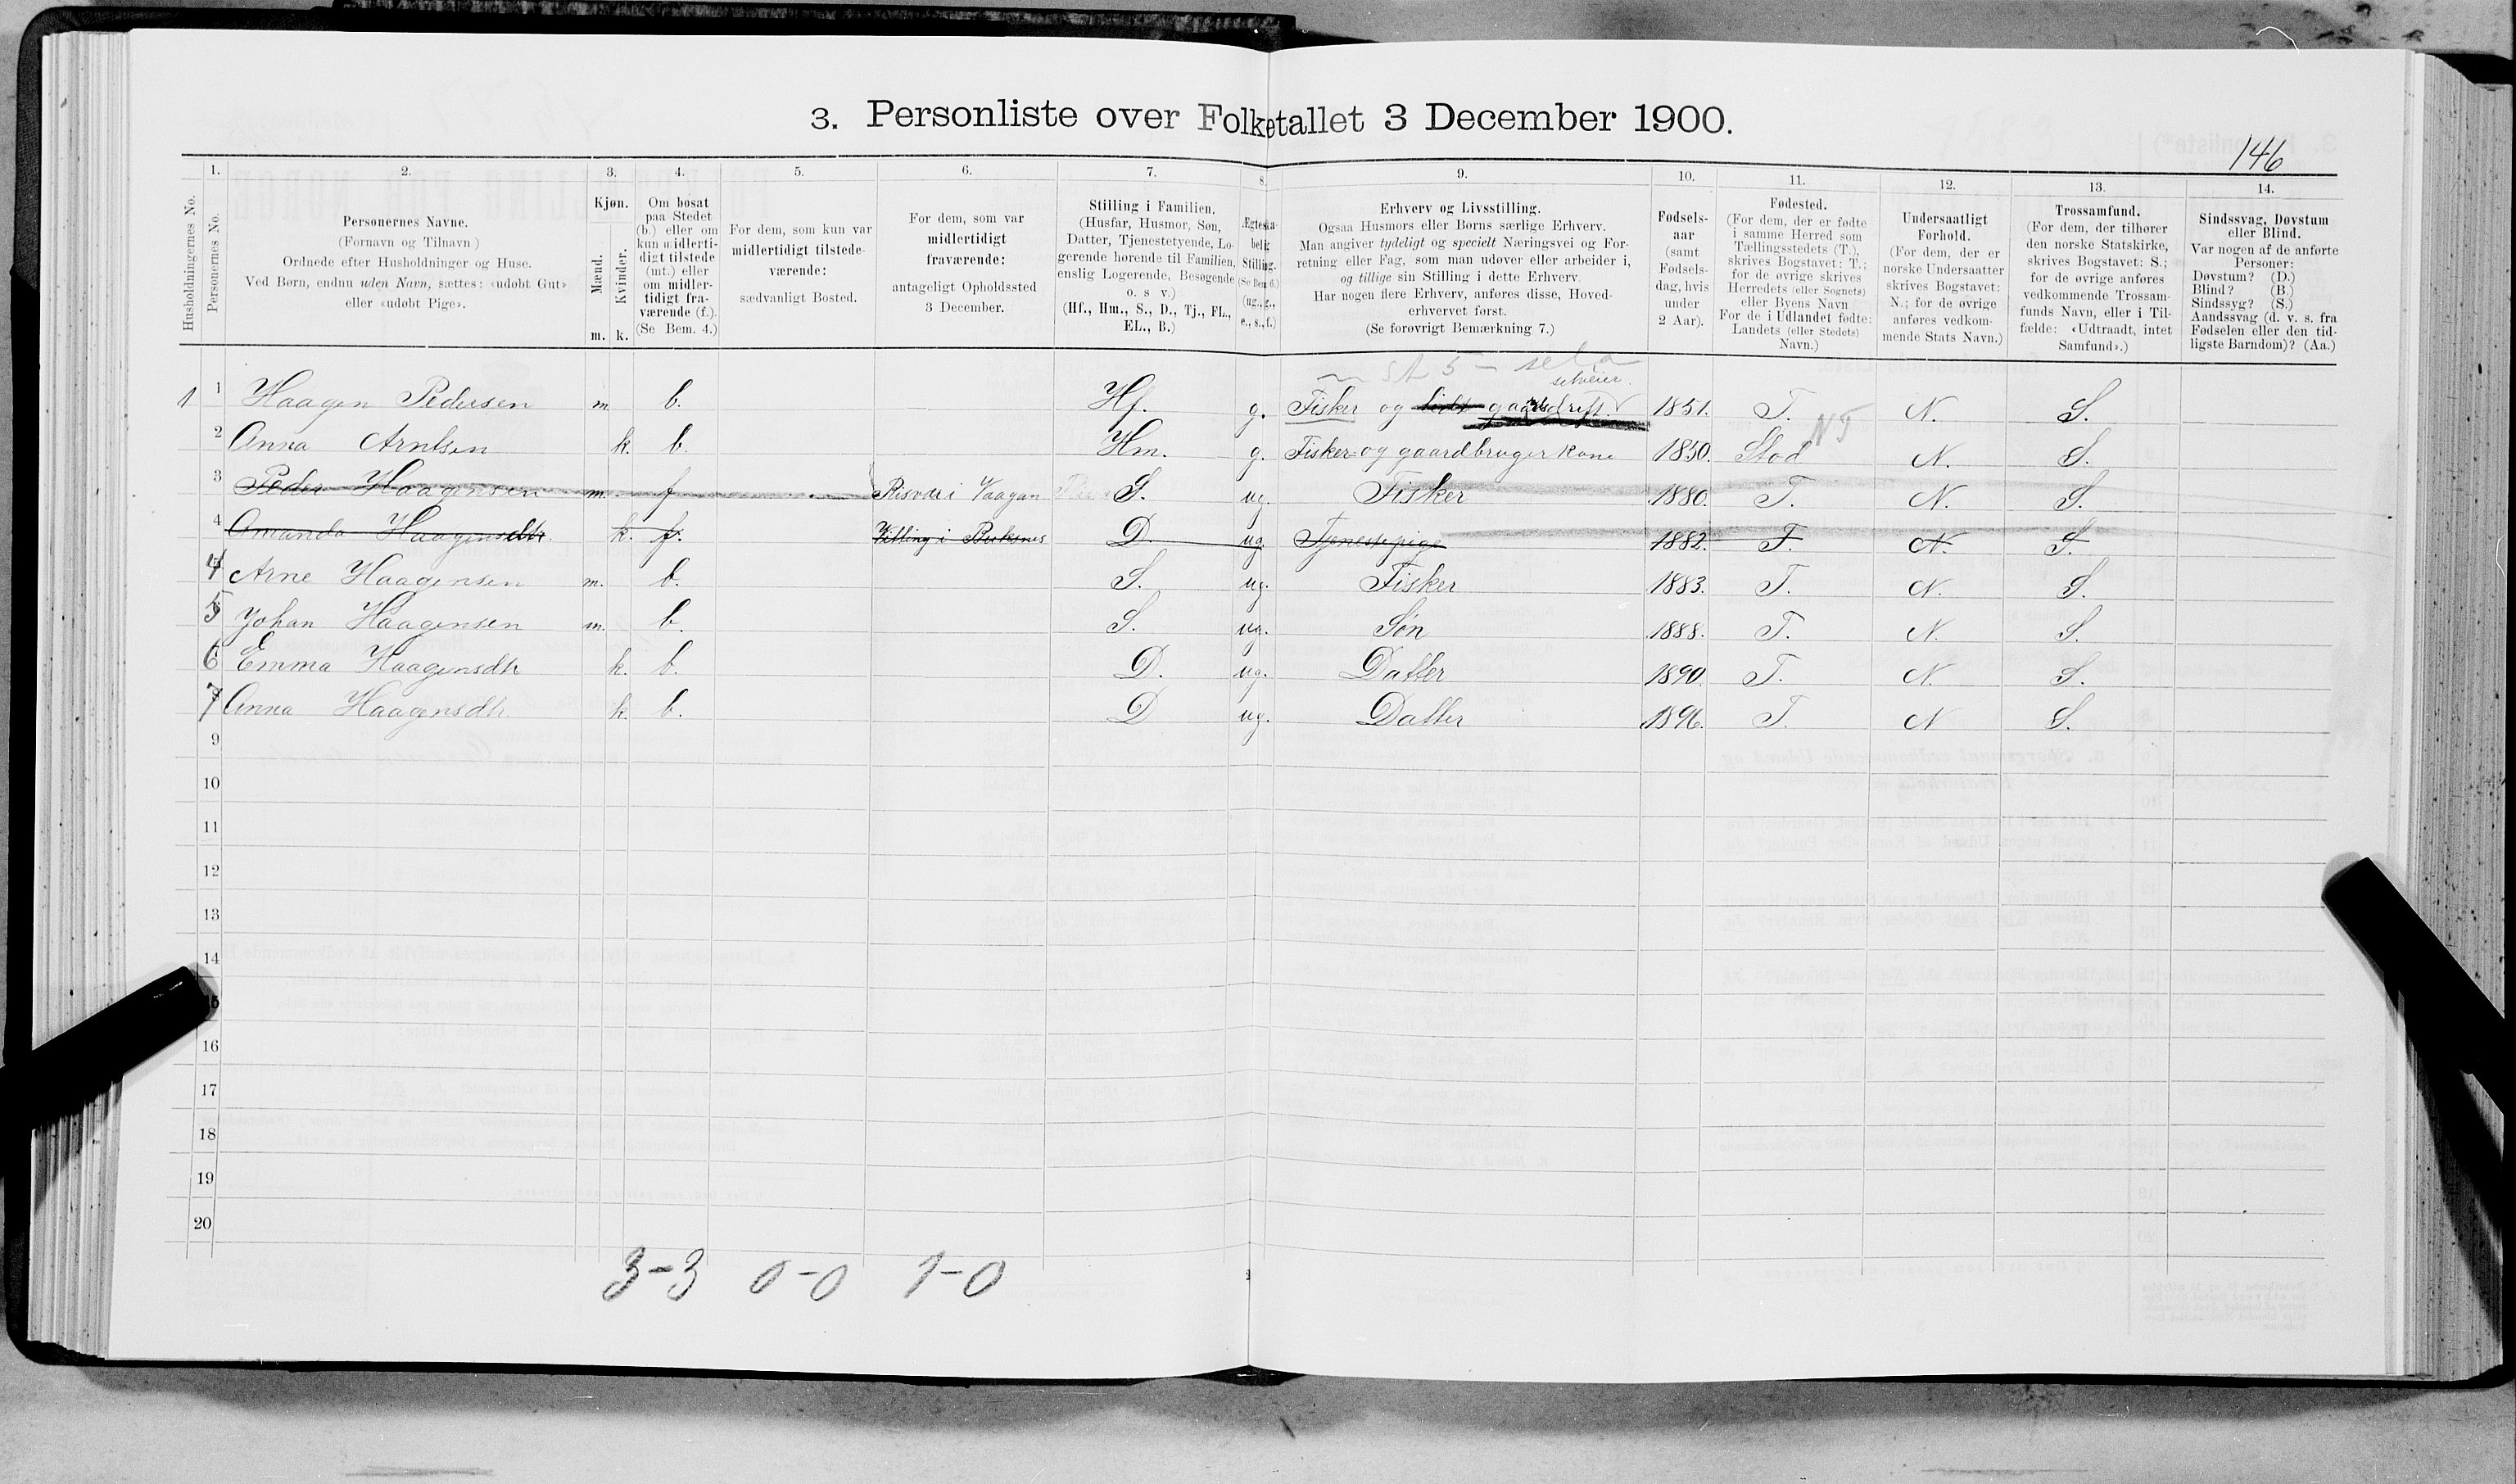 3. Personliste over Folketallet 3 December 1900.
146
Husholdningernes No.
1.
Personernes No.
2.
Personernes Navne.
(Fornavn og Tilnavn)
Ordnede efter Husholdninger og Huse.
Ved Børn, endnu uden Navn, sættes: «udøbt Gut»
eller «udøbt Pige».
3.
Kjøn.
Mænd.
Kvinder.
m. k.
4.
Om bosat
paa Stedet
(b.) eller om
kun midlerti-
digt tilstede
(mt.) eller
om midler-
tidigt fra-
værende (f.).
(Se Bem. 4.)
5.
For dem, som kun var
midlertidigt tilstede-
værende:
sædvanligt Bosted.
6.
For dem, som var
midlertidigt
fraværende:
antageligt Opholdssted
3 December.
7.
Stilling i Familien.
(Husfar, Husmor, Søn,
Datter, Tjenestetyende, Lo-
gerende hørende til Familien,
enslig Logerende, Besøgende
o. s v.)
(Hf., Hm., S., D., Tj., FL.,
EL., B.)
8.
Ægteska-
belig
Stilling.
(Se Bem. 6.)
(ug., g.,
e., s., f.)
9.
Erhverv og Livsstilling.
Ogsaa Husmors eller Børns særlige Erhverv.
Man angiver tydeligt og specielt Næringsvei og For-
retning eller Fag, som man udøver eller arbeider i,
og tillige sin Stilling i dette Erhverv.
Har nogen flere Erhverv, anføres disse, Hoved-
erhvervet først.
(Se forøvrigt Bemærkning 7.)
10.
Fødsels-
aar
(samt
Fødsels-
dag, hvis
under
2 Aar).
11.
Fødested.
(For dem, der er fødte
i samme Herred som
Tællingsstedets (T.),
skrives Bogstavet: T.;
for de øvrige skrives
Herredets (eller Sognets)
eller Byens Navn
For de i Udlandet fødte:
Landets (eller Stedets)
Navn.)
12.
Undersaatligt
Forhold.
(For dem, der er
norske Undersaatter
skrives Bogstavet:
N.; for de øvrige
anføres vedkom-
mende Stats Navn.)
13.
Trossamfund.
(For dem, der tilhører
den norske Statskirke,
skrives Bogstavet: S.;
for de øvrige anføres
vedkommende Trossam-
funds Navn, eller i Til-
fælde: «Udtraadt, intet
Samfund».)
14.
Sindssvag, Døvstum
eller Blind.
Var nogen af de anførte
Personer:
Døvstum? (D.)
Blind? (B.)
Sindssyg? (S.)
Aandssvag (d. v. s. fra
Fødselen eller den tid-
ligste Barndom)? (Aa.)
selveier.
1 1 Haagen Pedersen m. b. Hf. g. Fisker og lidt gaardsdrift. 1851. T. N. S.
2 Anna Arntsen k. b. Hm. g. Fisker og gaardbruger Kone 1850. Stod NT N. S.
3 Peder Haagensen m. f Risvær i Vaagan S. ug. Fisker 1880. T. N. S.
4 Amanda Haagensdtr. k. f. i D. ug. Tjenestepige 1882. T. N. S.
4 Arne Haagensen m. b. S. ug. Fisker 1883. T. N. S.
5 Johan Haagensen m. b. S. ug. Søn 1888. T. N. S.
6 Emma Haagensdtr k. b. D. ug. Datter 1890. T. N. S.
7 Anna Haagensdtr. k. b. D ug. Datter 1896. T. N S.
9
10
11
12
13
14
15
16
17
18
19
20
3-3 0-0 1-0